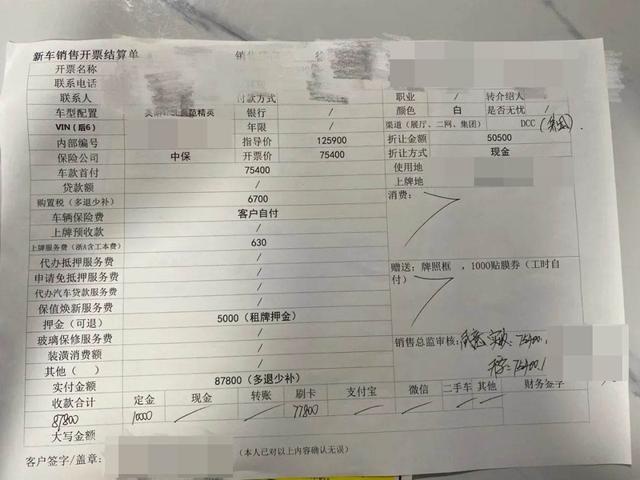 新车销售开票结算单 销售
开票名称
联系电话
联系人 付款方式 / 职业 / 转介绍人 /
车型配置 精英 银行 / 颜色 白 是否无忧 /
VIN（后6） 年限 / 渠道（展厅、二网、集团） DCC
内部编号 指导价 125900 折让金额 50500
保险公司 中保 开票价 75400 折让方式 现金
车款首付 75400 使用地
贷款额 / 上牌地
购置税（多退少补） 6700 消费：
车辆保险费 客户自付
上牌预收款 /
上牌服务费（浙A含工本费） 630
代办抵押服务费 / 赠送：牌照框 ，1000贴膜券（工时自付）
申请免抵押服务费 /
代办汽车贷款服务费 /
保值焕新服务费 /
押金（可退） 5000（租牌押金）
玻璃保修服务费 / 销售总监审核：
装潢消费额 /
其他（ ） /
实付金额 87800（多退少补）
收款合计 定金 现金 转账 刷卡 支付宝 微信 二手车 其他 财务签字
87800 10000 / / 77800 / / / /
大写金额
客户签字/盖章： （本人已对以上内容确认无误）